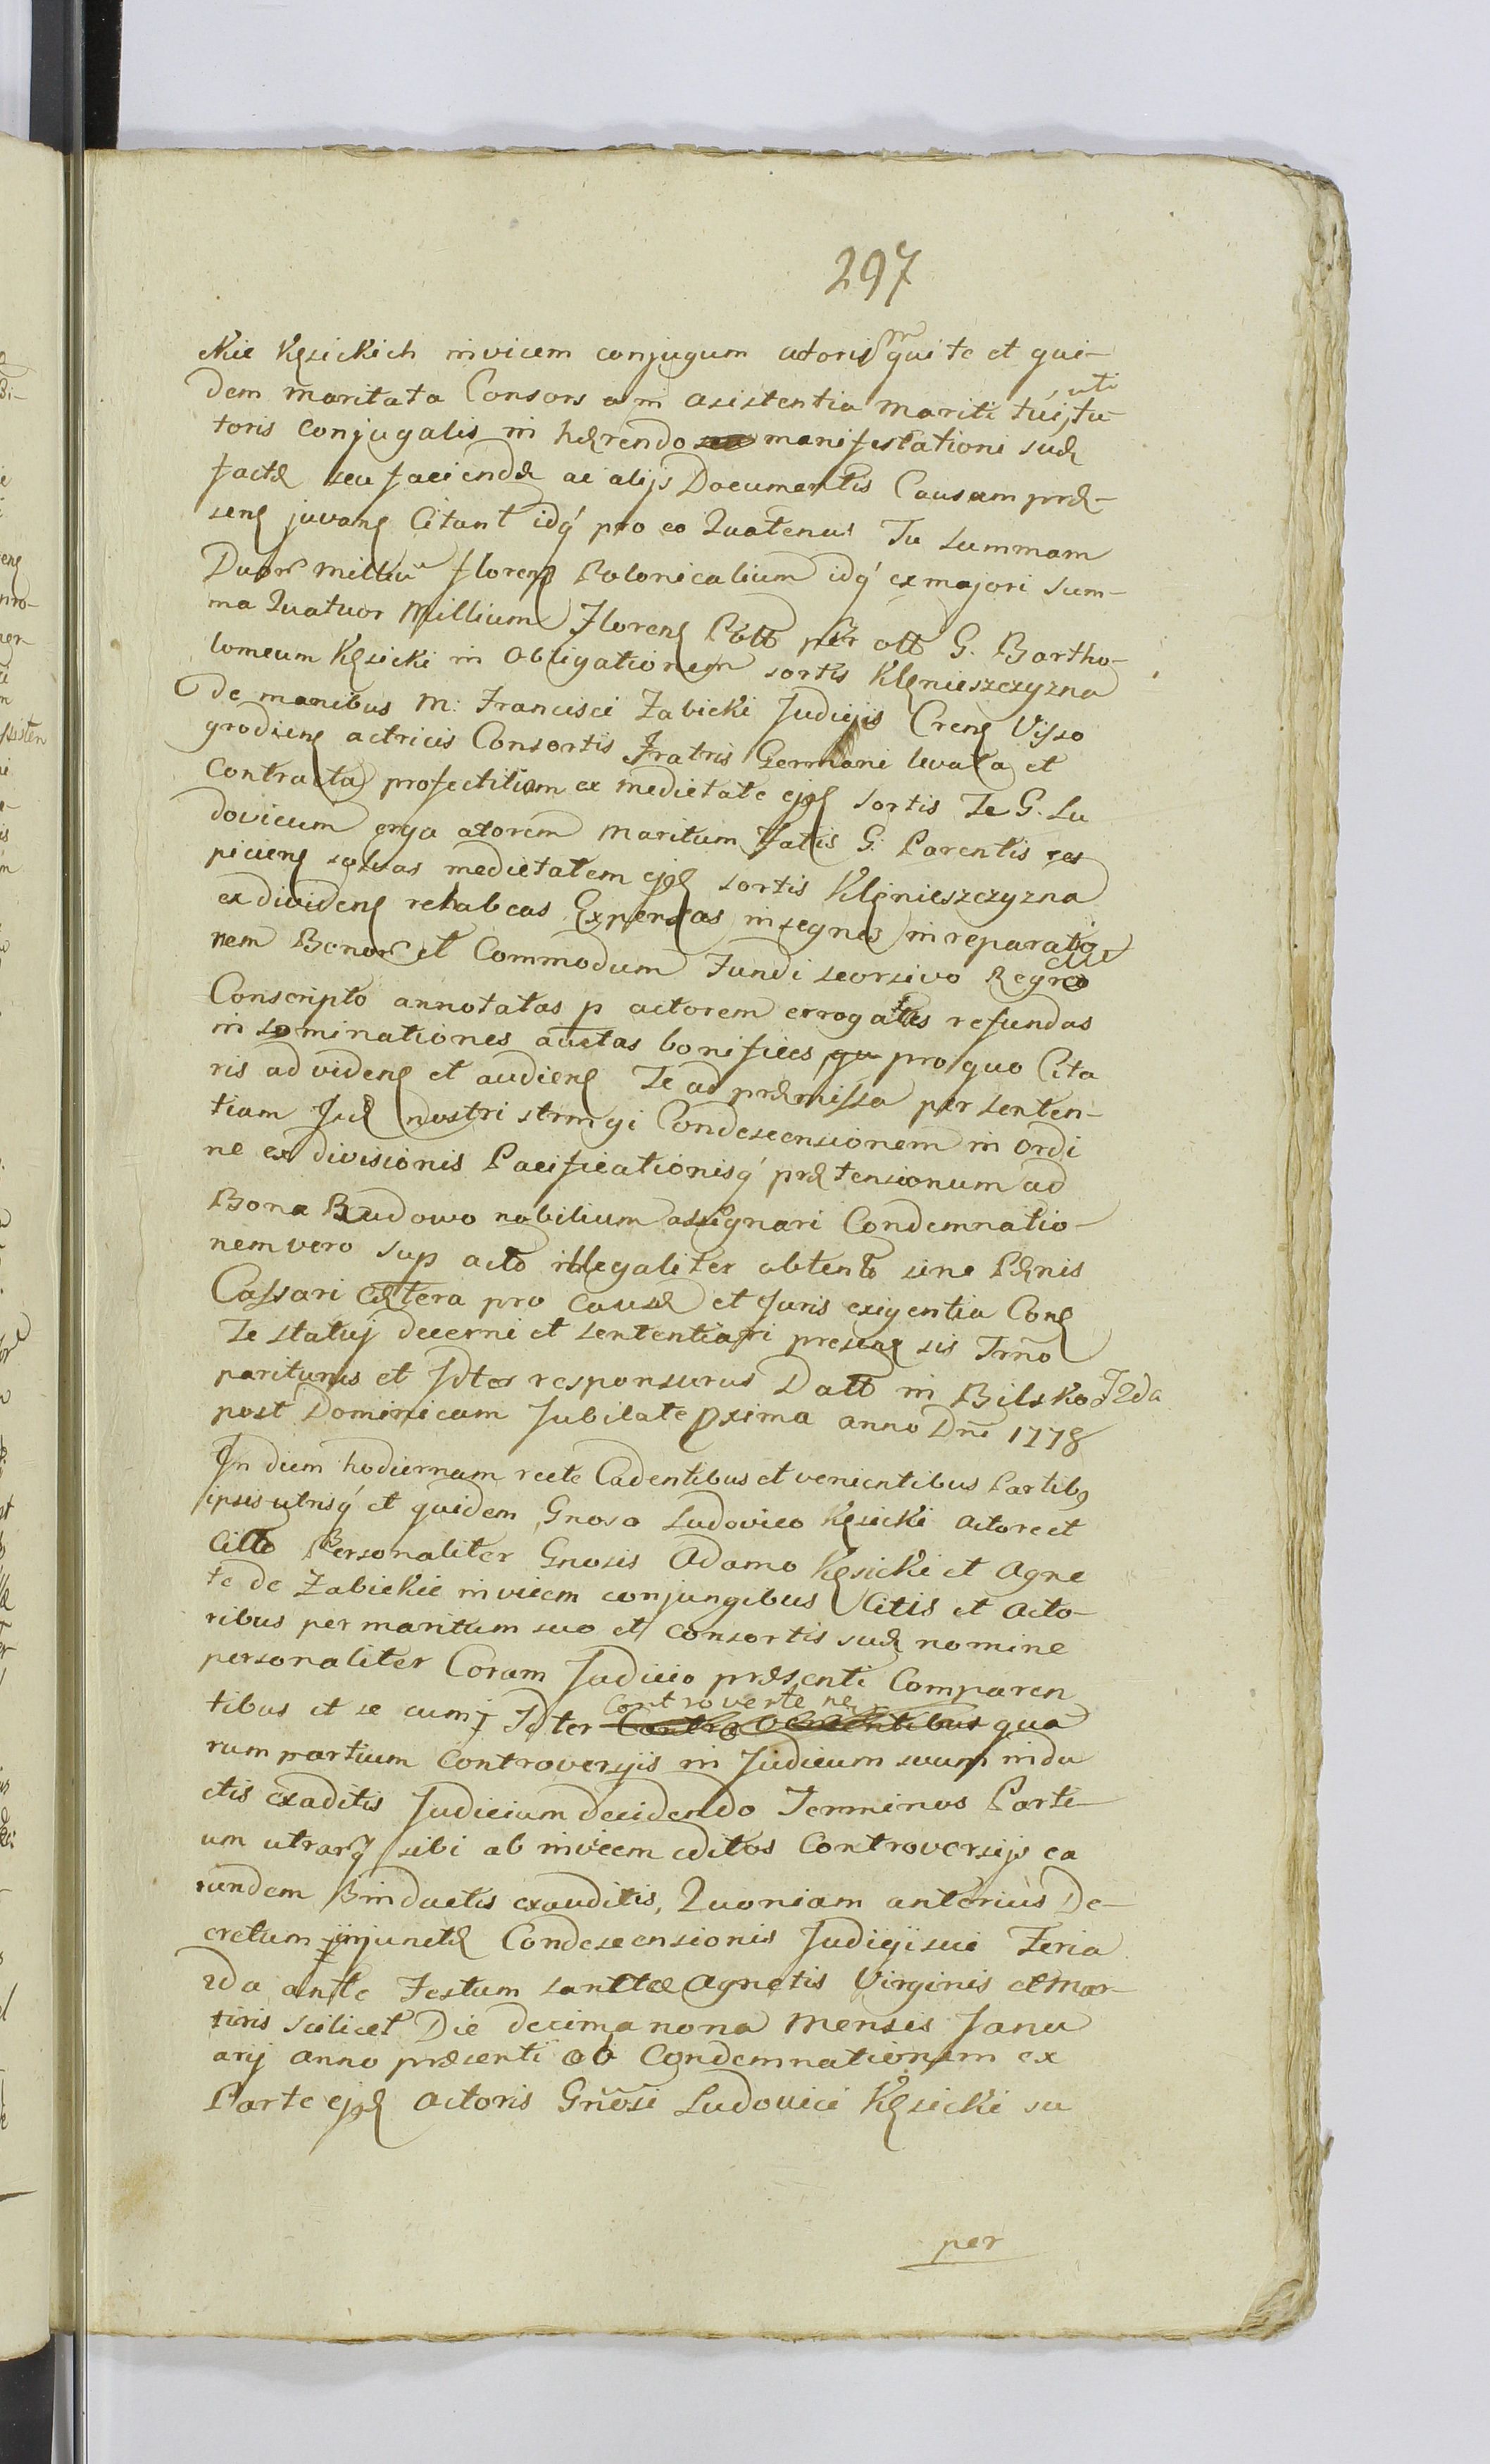 297
ckie Kęsickich invicem conjugum actorum qui te et qui-
dem maritata Consors am asistentia mariti sui, uti tu-
toris conjugalis in hęrendo manifestationi suę
factę seu faciendę ac alijs Documentis Causam prę-
senę juvanę Citant idq́ pro eo Quatenus Tu summam
Duor milliū florenę Polonicalium idq́ ex majori sum-
ma Quatuor Millium Florenę Poll per olł G. Bartho-
lomeum Kęsicki in Obligationem sortis Klęnieszczyzna
de manibus M: Francisci Zabicki Judicijs Crenę Visso
grodienę actricis Consortis Fratris Germani levata et
Contracta profectitiam ex medietate ejdę sortis Te G. Lu
dovicum erga actorem maritum Fatis G. Parentis res
picienę solvas medietatem ejdę sortis Klęnieszczyzna
ex dividenę rehabeas Expensas insegnes in reparatio
nem Bonor et Commodum Fundi seorsivo Regro
Conscripto annotatas p actorem errogatas refundas
in sominationes auctas bonifices pro quo Cita
ris ad videnę et audienę Te ad pręmissa per senten-
tiam Judę nostri stringi Condescensionem in ordi
ne ex divisionis Pacificationisq́ prętensionum ad
Bona Rudowo nobilium assignari Condemnatio-
nem vero sup acto illegaliter obtento sine Pęnis
Cassari Cętera pro causę et Juris exigentia Conę
Te statuj decerni et sententiari presenę sis Trno
pariturus et Jdter responsurus Datt in Bilsko F2da
post Dominicam Jubilate pxima anno Dnī 1778
In diem hodiernam recte Cadentibus et venientibus Partibg
ipsis utrisq́ et quidem Gnoso Ludovico Kęsicki actore et
Citto Personaliter Gnosis Adamo Kęsicki et Agne
te de Zabickie invicem conjungibus Citis et Acto-
ribus per maritum suo et consortis suę nomine
personaliter Coram Judicio pręsenti Comparen
tibus et se cum Jdter Controverte ne qua
rum partium Controversijs in Judicium suum indu
ctis exaditis Judicium decidendo Terminos Parti-
um utrarq sibi ab invicem editos Controversijs ea
rundem inductis exauditis, Quoniam anterius De-
cretum injunctę Condescensionis Judicij sui Feria
2da ante Festum sanctæ Agnetis Virginis et Mar-
tiris scilicet Die decima nona Mensis Janu
arij anno præsenti ob Condemnationem ex
Parte ejdę actoris Gnōsi Ludovici Kęsicki su
per